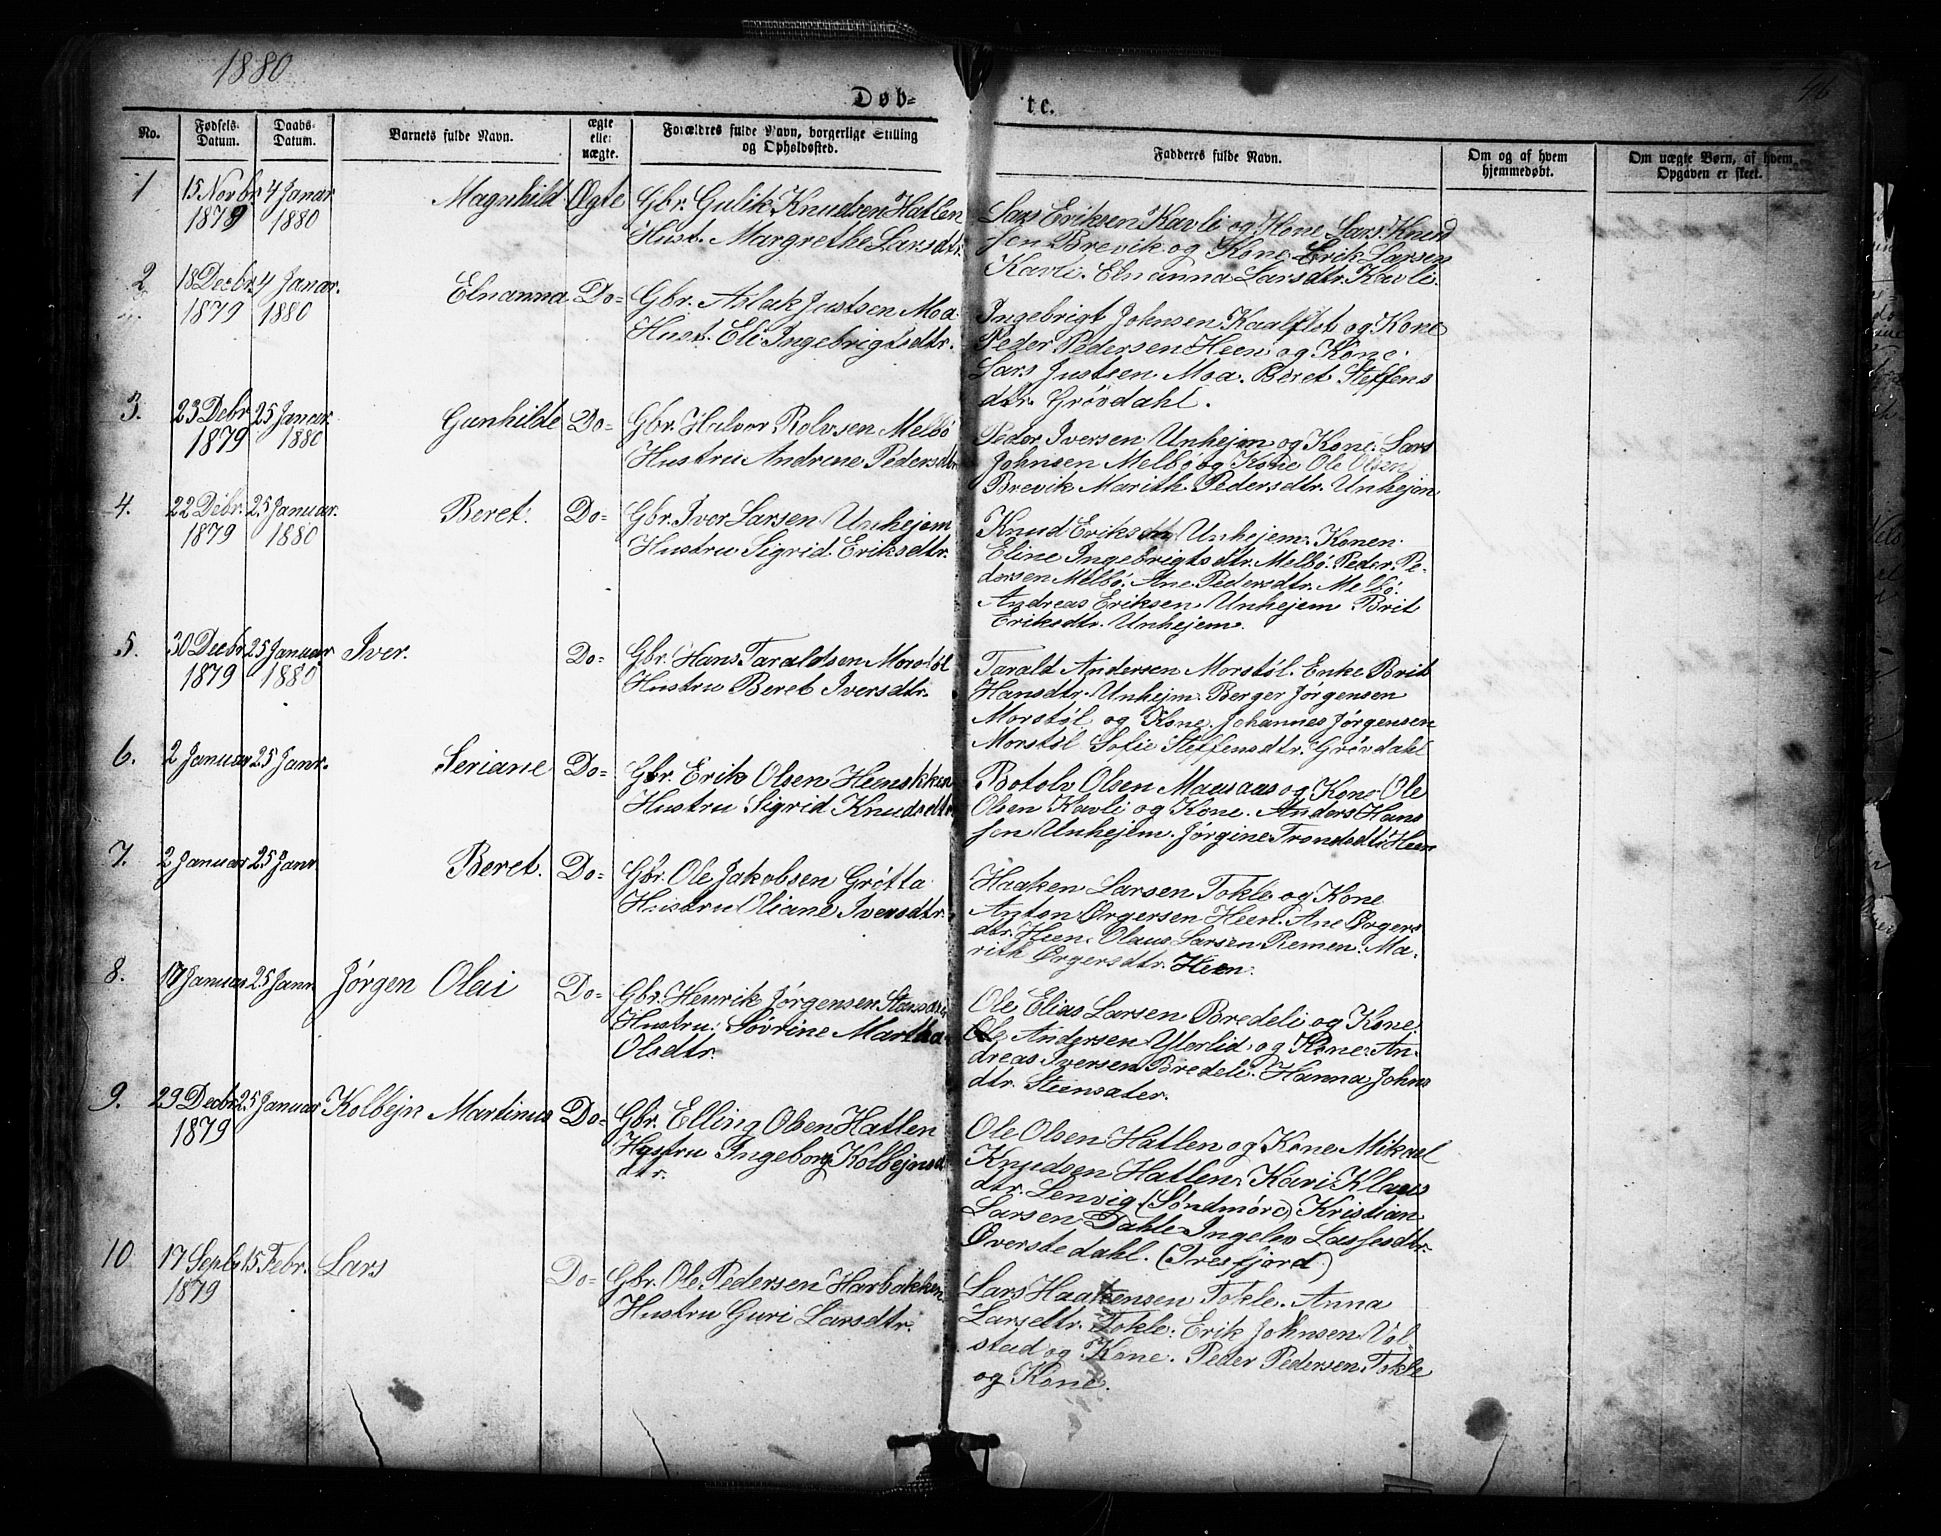 1880
96
Døb-
te.
No.
Fødsels-
Datum.
Daabs-
Datum.
Barnets fulde Navn.
ægte
elle:
uægte.
Forældres fulde Navn, borgerlige Stilling
og Opholdssted.
Fadderes fulde Navn.
Om og af hvem
hjemmedøbt.
Om uægte Børn, af hvem
Opgaven er skeet.
1
15 Novbr
1879
4 Januar
1880
Magnhild
Ægte
Gbr. Gulik Knudsen Hatlen
Hust. Margrethe Larsdtr.
Lars Eriksen Kavli og Kone Lars Knud
sen Brevik og Kone Erik Larsen
Kavli. Elnanna Larsdtr. Kavli.
2
18 Decbr.
1879
4 Januar.
1880
Elnanna
Do=
Gbr. Aslak Justsen Moa
Hust. Eli Ingebrigtsdtr.
Ingebrigt Johnsen Kaalflot og Kone
Peder Pedersen Heen og Kone.
Lars Justsen Moa. Beret Steffens
dtr. Grøvdahl.
3.
23 Debr
1879
25 Januar
1880
Gunhilde
Do=
Gbr. Halvor Rolvsen Melbø
Hustru Andrine Pedersdtr
Peder Iversen Unhejm og Kone. Lars
Johnsen Melbø og Kone Ole Olsen
Brevik Marith Pedersdtr. Unhejm
4.
22 Debr.
1879
25 Januar.
1880
Beret.
Do=
Gbr. Iver Larsen Unhejem
Hustru Sigrid Eriksdtr.
Knud Eriksen Unhejem. Konen
Eline Ingebrigtsdtr. Melbø. Peder Pe-
dersen Melbø. Ane Pedersdtr. Melbø.
Andreas Eriksen Unhejem Brit
Eriksdtr. Unhejem.
5.
30 Decbr
1879
25 Januar
1880
Iver.
Do=
Gbr. Hans Taraldsen Morstøl
Hustru Beret Iversdtr.
Tarald Andersen Morstøl. Enke Brit
Hansdtr. Unhejm. Berger Jørgensen
Morstøl og Kone. Johannes Jørgensen
Morstøl Sofie Steffensdtr. Grøvdahl
6.
2 Januar
25 Janr.
Seriane
Do=
Gbr. Erik Olsen
Hustru Sigrid Knudsdtr
Botolv Olsen Mausaas og Kone Ole
Olsen Kavli og Kone. Anders Hans
sen Unhejem. Jørgine Trondsdtr Heen
7.
2 Januar
25 Janr
Beret.
Do=
Gbr. Ole Jakobsen Grøtta
Hustru Oliane Iversdtr.
Haaken Larsen Tokle og Kone
Anton Ørgersen Heen. Ane Ørgers
dtr. Heen. Olaus Larsen Remen. Ma-
rith Ørgersdtr. Heen.
8.
Januar
25 Janr
Jørgen Olai
Do=
Gbr. Henrik Jørgensen
Hustru. Søvrine Martha
Olsdtr.
Ole Elias Larsen Bredeli og Kone.
Ole Andersen Ytterlid og Kone. An-
dreas Iversen Bredeli. Hanna Johns
dtr. Stensæter.
9.
29 Decbr
1879
25 Januar
Kolbejn Martinus
Do=
Gbr. Elling Olsen Hatlen
Hustru Ingeborg Kolbejns
dtr.
Ole Olsen Hatlen og Kone Mikael
Knudsen Hatlen. Kari Klaus
dtr. Lenvig (Søndmøre) Kristian
Larsen Dahle Ingelev Lassesdtr.
Øverstedahl. (Tresfjord)
10
17 Septbr
1879
15 Febr.
Lars
Do=
Gbr. Ole Pedersen Harbakken
Hustru Guri Larsdtr.
Lars Haakensen Tokle. Anna
Larsdtr. Tokle. Erik Johnsen Vol
stad og Kone. Peder Pedersen Tokle
og Kone.